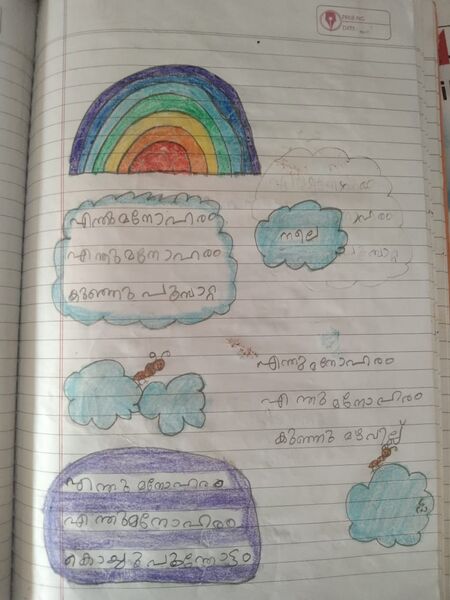 PAGE NO.
DATE
എന്തുമനോഹരം
എന്തുമനോഹരം
കുഞ്ഞു പൂമ്പാറ്റ
നല്ല
എന്തുമനോഹരം
എന്തുമനോഹരം
കുഞ്ഞു മഴവില്ല്
എന്തു മനോഹരം
എന്തുമനോഹരം
കൊച്ചുപൂന്തോട്ടം